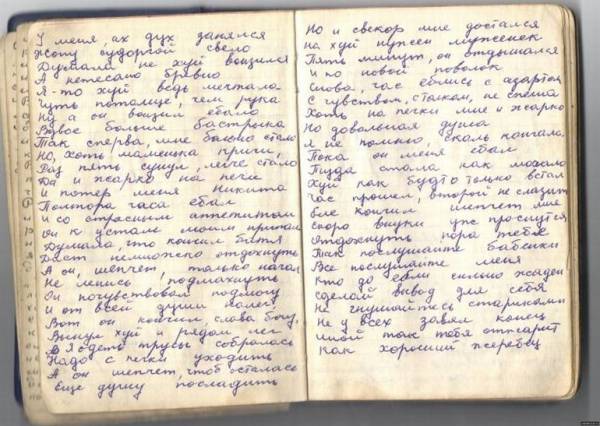 У меня, ах дух занялся
Жопу судорогой свело
Думала не хуй вонзился
А нетесано бревно
Я-то хуй ведь мечтала
Чуть потолще, чем рука
Ну а он вонзил ебало
Вдвое больше
Так сперва, мне больно стало
Но, хоть мамешка кричи,
Раз пять сунул, легче стало
Да и жарко на печи
И потер меня Никита
Полтора часа ебал
И со страсным аппетитом
Он к устам моим припал
Думала, что кончил битва
Даст немножко отдохнуть
А он, шепчет, только начал
Не ленись, подмахнуть
Он почувствовал подмогу
И от всей души налег
Вот он кончил, слава богу,
Вынул хуй и рядом лег
Я одеть трусы собралась
Надо с печки уходить
А он шепчет, чтоб осталась
Еще душу посладить
Но и свекор мне достался
На хуй нужен муженек
Пять минут, он отдышался
И по новой поволок
Снова, час еблись с азартом
С чувством, с толком, не спеша
Хоть на печки мне и жарко
Но довольная душа
Я не помню, сколь кончала.
Пока он меня ебал
Пизда стала как мочало
Хуй как будто только встал
Час прошел, второй не слазит
Еле кончил шепчет мне
Скоро внуки уж проснутся
Отдохнуть пора тебе
Так послушайте бабенки
Все послушайте меня
Кто до ебли сильно жаден
Сделай вывод для себя
Не гнушайтесь стариками
Не у всех завял конец
Иной так тебя отшарит
Как хороший жеребец